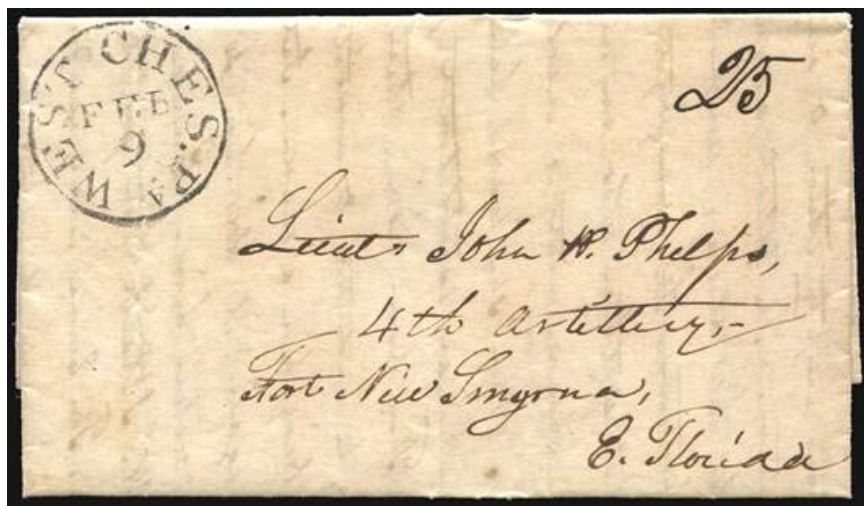 WEST CHES. PA
FEB
9
25
Lieut. John W. Phelps,
4th Artillery,-
Fort New Smyrna,
E. Florida